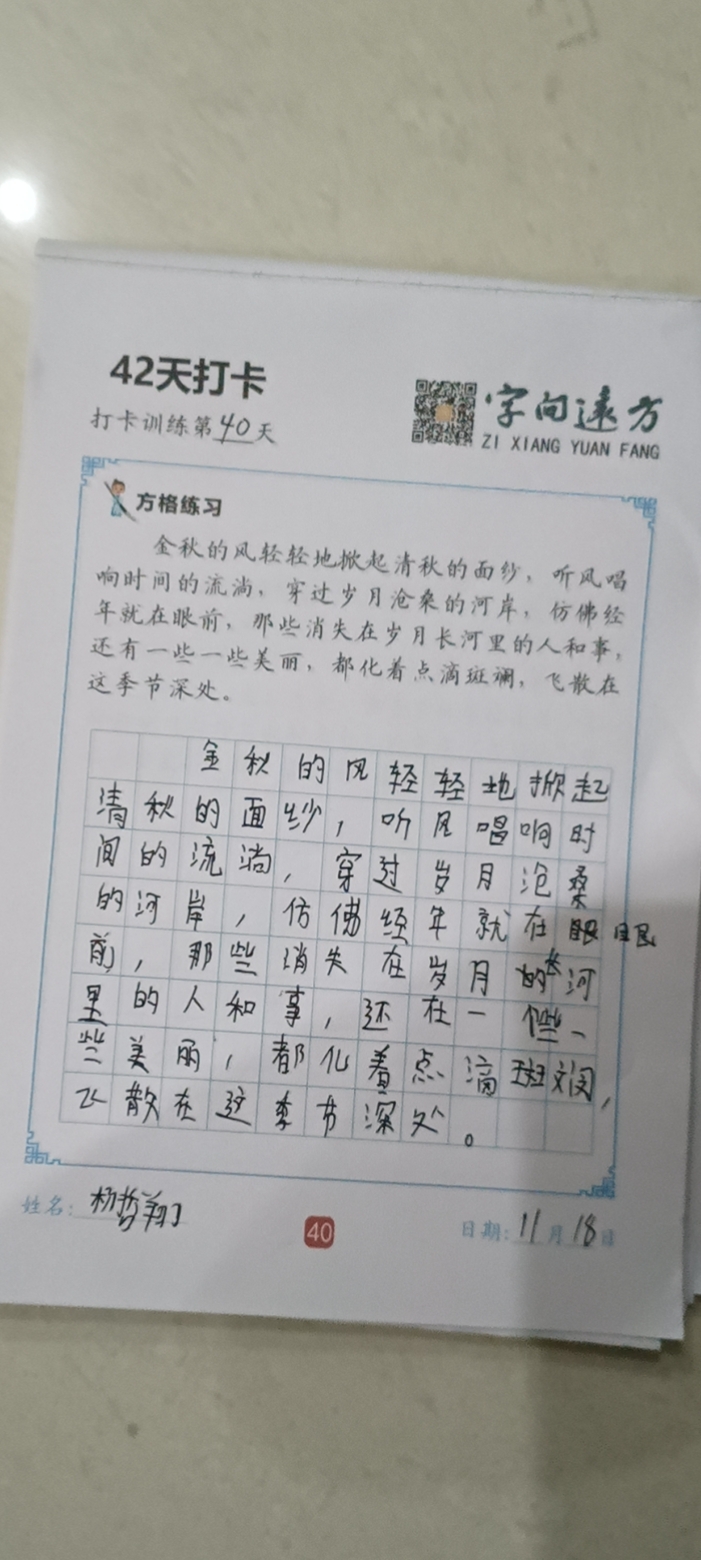 42天打卡
打卡训练第40天
字向远方
ZI XIANG YUAN FANG
方格练习
金秋的风轻轻地掀起清秋的面纱，听风唱
响时间的流淌，穿过岁月沧桑的河岸，仿佛经
年就在眼前，那些消失在岁月长河里的人和事，
还有一些一些美丽，都化着点滴斑斓，飞散在
这季节深处。
金秋的风轻轻地掀起
清秋的面纱，听风唱响时
间的流淌，穿过岁月沧桑
的河岸，仿佛经年就在眼眼
前，那些消失在岁月的长河
里的人和事，还在一些一
些美丽，都化着点滴斑斓，
飞散在这季节深处。
姓名：杨哲翔
40
日期：11月18日